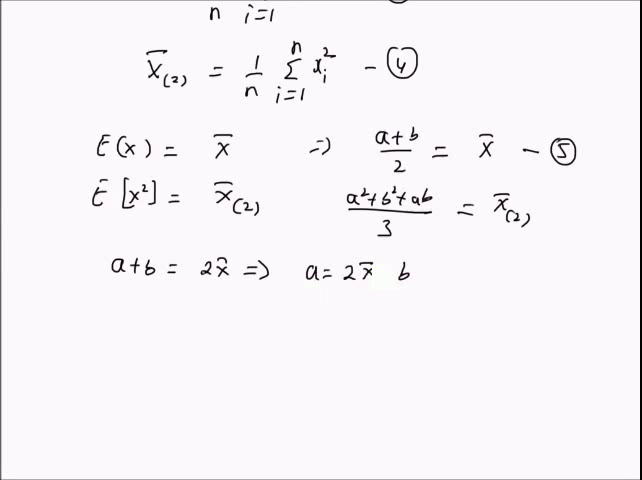 n i=1
x̄₍₂₎ = 1/n Σⁿᵢ₌₁ xᵢ² - ④
E(x) = x̄ => (a+b)/2 = x̄ - ⑤
E[x²] = x̄₍₂₎ (a²+b²+ab)/3 = x̄₍₂₎
a+b = 2x̄ => a = 2x̄ b